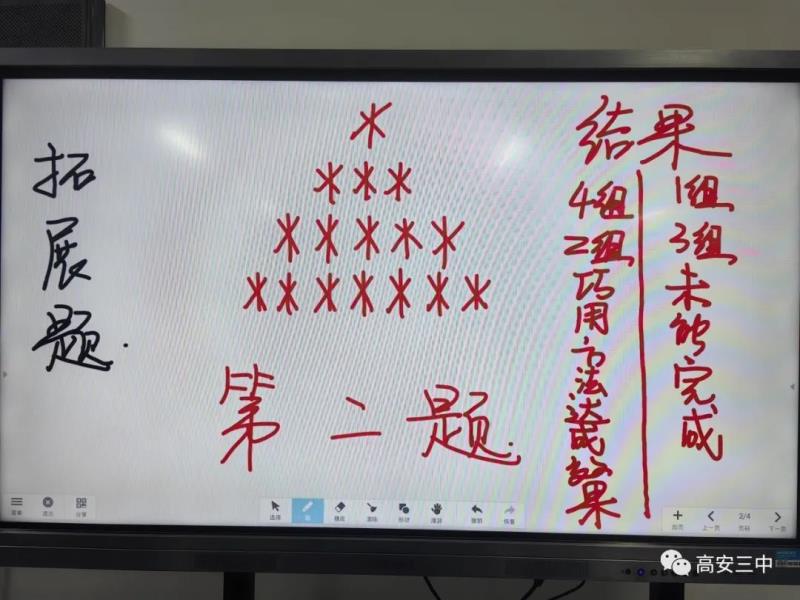 拓展题.
*
***
*****
*******
第二题.
结果
4组
2组
巧用方法达成效果
1组
3组
未能完成
菜单
退出
分享
选择
笔
橡皮
清除
形状
漫游
撤销
恢复
加页
上一页
2/4
页码
下一页
高安三中